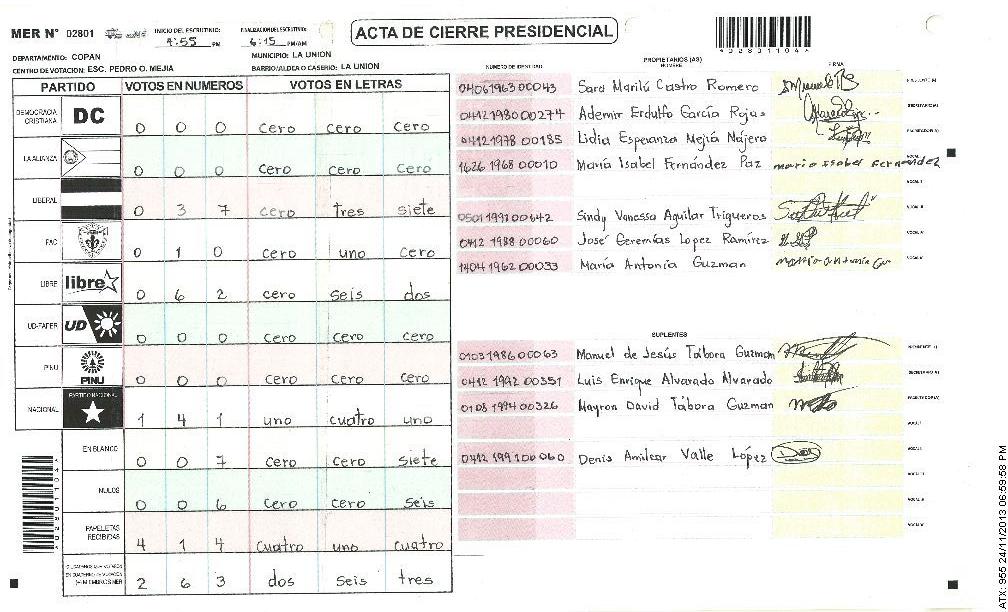 MER N° 02801
INICIO DEL ESCRUTINIO: 4:55 PM
FINALIZACION DEL ESCRUTINIO: 6:15 PM/AM
ACTA DE CIERRE PRESIDENCIAL
DEPARTAMENTO: COPAN
MUNICIPIO: LA UNION
CENTRO DE VOTACION: ESC. PEDRO O. MEJIA
BARRIO/ALDEA O CASERIO: LA UNION
PARTIDO VOTOS EN NUMEROS VOTOS EN LETRAS
DEMOCRACIA CRISTIANA DC 0 0 0 cero cero cero
LA ALIANZA 0 0 0 cero cero cero
LIBERAL 0 3 7 cero tres siete
PAC 0 1 0 cero uno cero
LIBRE libre 0 6 2 cero seis dos
UD-FAPER UD 0 0 0 cero cero cero
PINU PINU 0 0 0 cero cero cero
NACIONAL PARTIDO NACIONAL 1 4 1 uno cuatro uno
EN BLANCO 0 0 7 cero cero siete
NULOS 0 0 6 cero cero seis
PAPELETAS RECIBIDAS 4 1 4 cuatro uno cuatro
2 6 3 dos seis tres
PROPIETARIOS (AS)
NUMERO DE IDENTIDAD NOMBRE FIRMA
0406 1963 00043 Sara Marilú Castro Romero
0412 1980 00274 Ademir Erdulfo García Rojas
0412 1978 00185 Lidia Esperanza Mejía Nájero
1626 1968 00010 María Isabel Fernández Paz maria isabel Fernandez
0501 1991 00642 Sindy Vanessa Aguilar Trigueros
0412 1988 00060 José Geremías Lopez Ramírez
1404 1962 00033 María Antonia Guzman
SUPLENTES
0103 1986 00063 Manuel de Jesús Tábora Guzman
0412 1992 00351 Luis Enrique Alvarado Alvarado
0108 1994 00326 Mayron David Tábora Guzman
0412 1991 00060 Denis Amilcar Valle López
ATX: 955 24/11/2013 06:59:58 PM